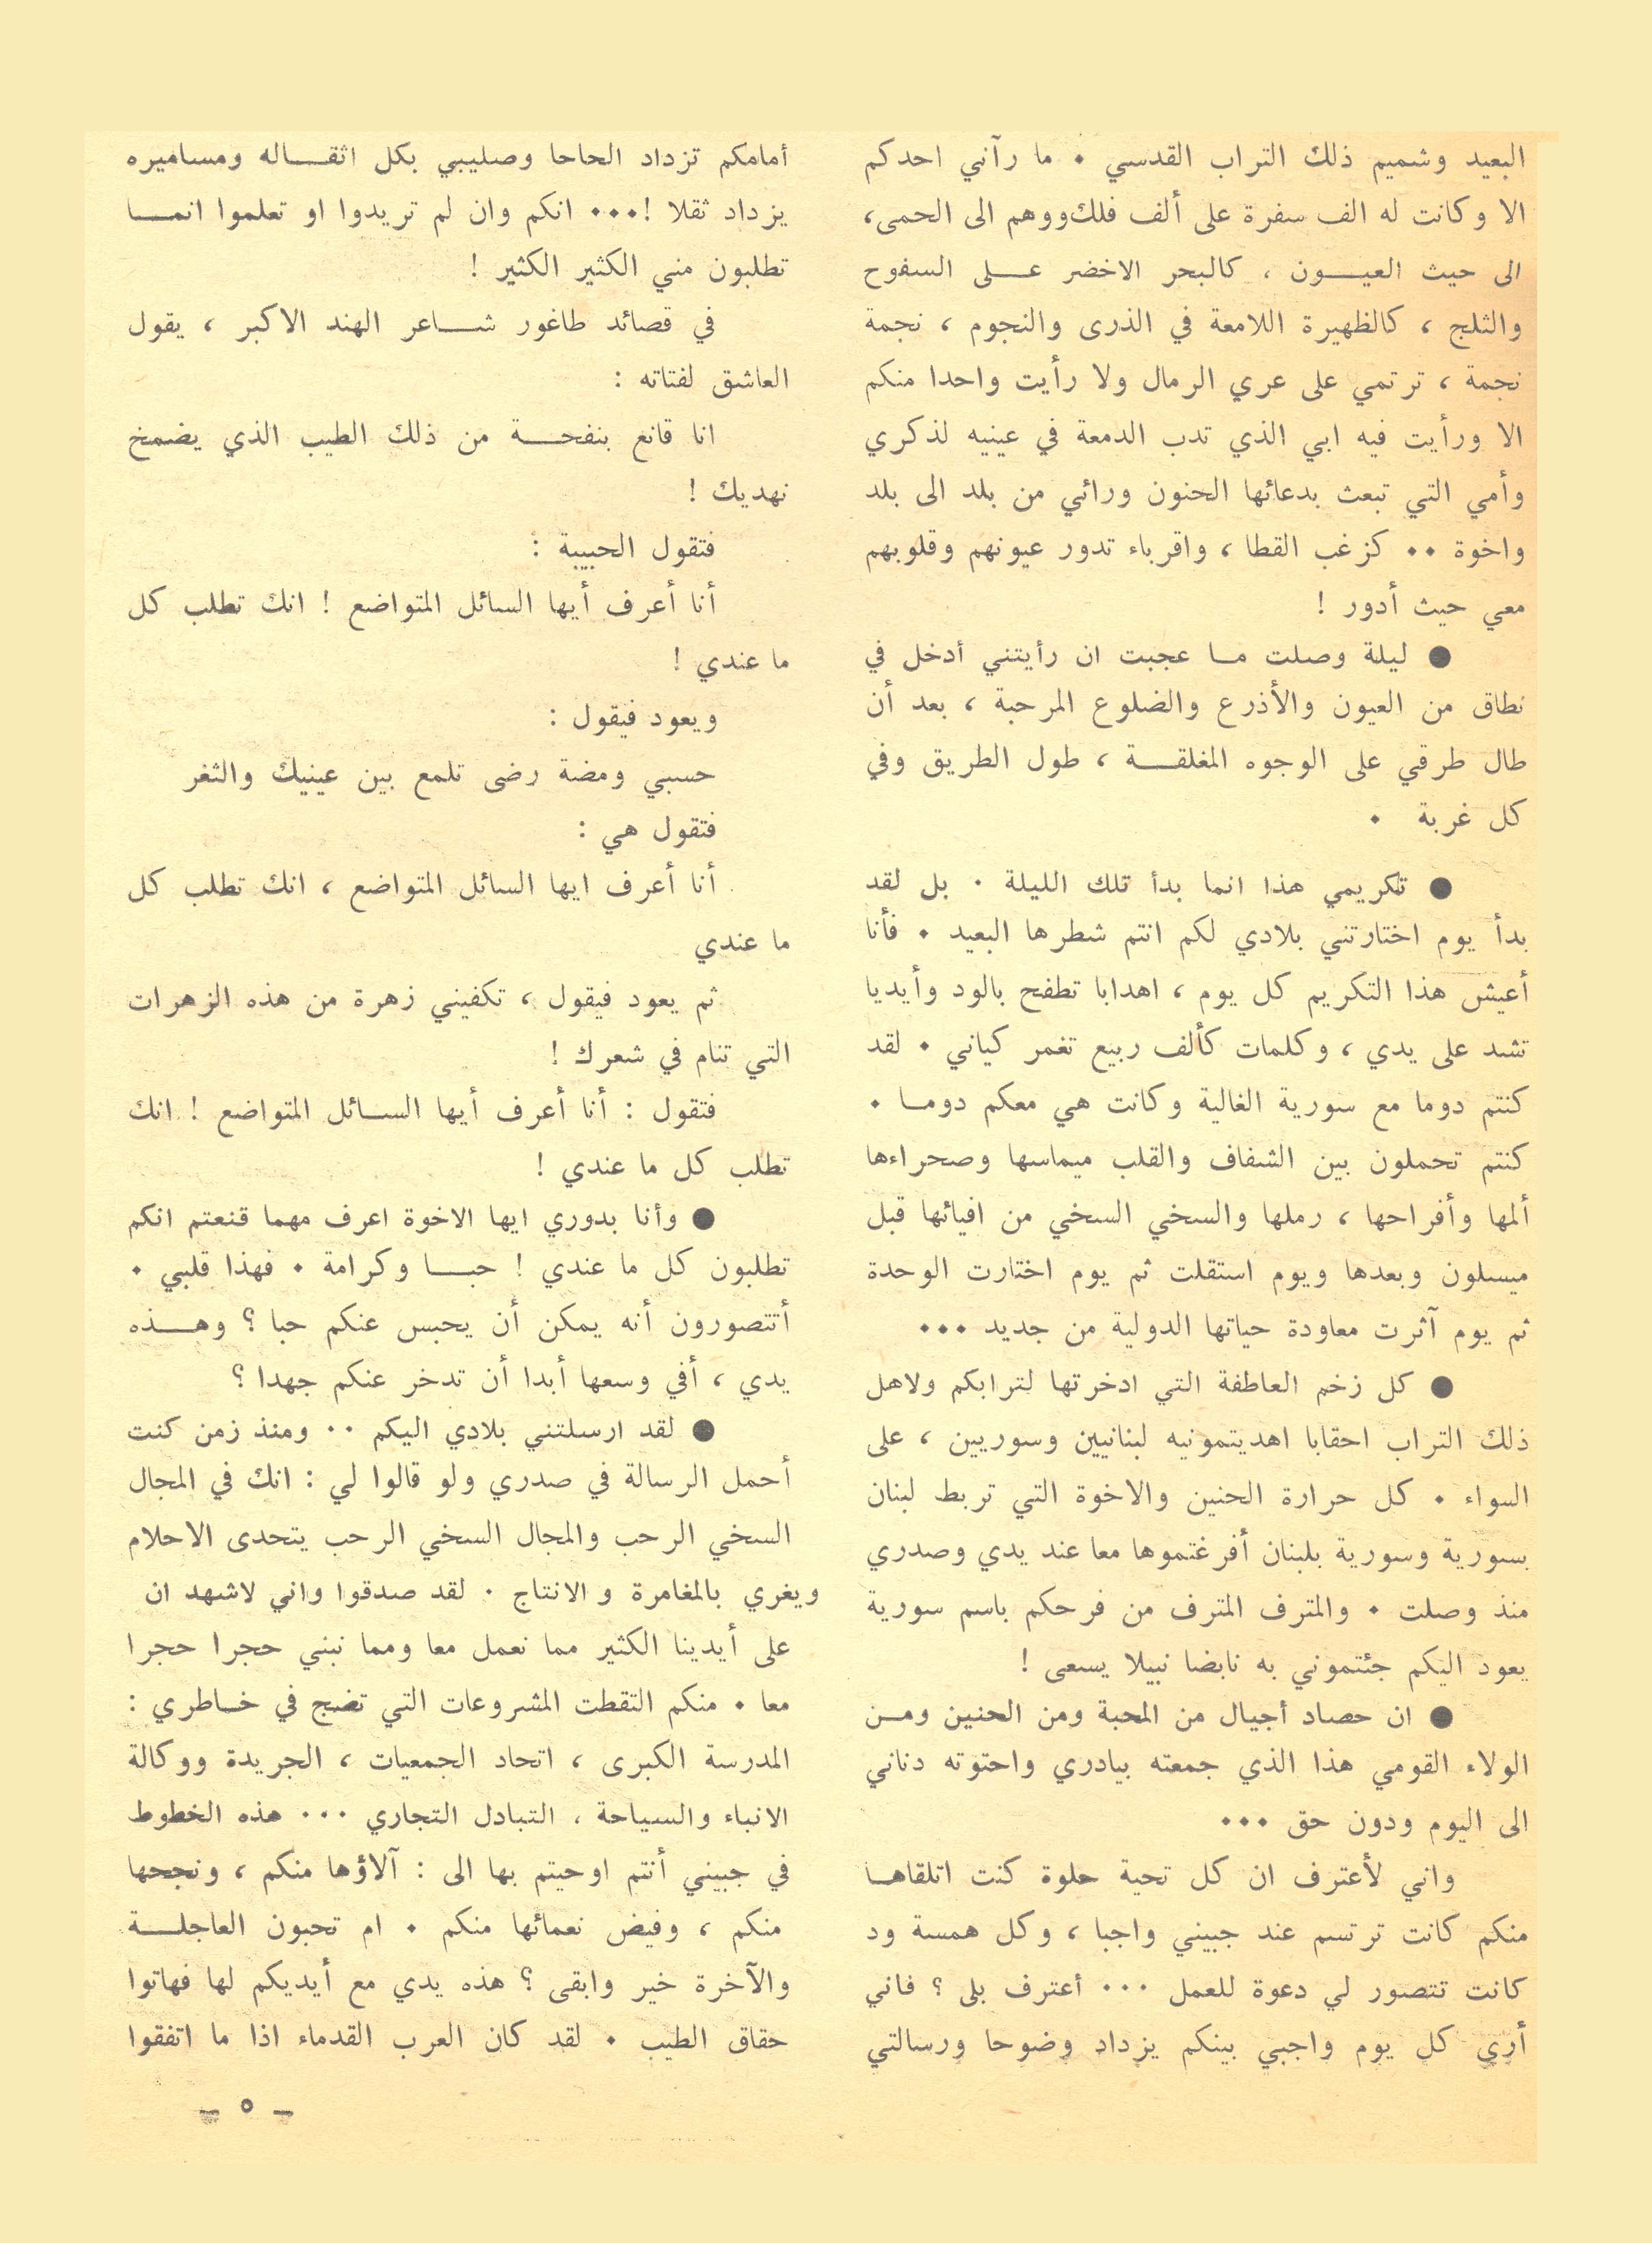 البعيد وشميم ذلك التراب القدسي • ما رآني احدكم
الا وكانت له الف سفرة على ألف فلك ووهم الى الحمى،
الى حيث العيـــون ، كالبحر الاخضر عـــلى السفوح
والثلج ، كالظهيرة اللامعة في الذرى والنجوم ، نجمة
نجمة ، ترتمي على عري الرمال ولا رأيت واحدا منكم
الا ورأيت فيه ابي الذي تدب الدمعة في عينيه لذكري
وأمي التي تبعث بدعائها الحنون ورائي من بلد الى بلد
واخوة •• كزغب القطا ، واقرباء تدور عيونهم وقلوبهم
معي حيث أدور !
● ليلة وصلت مـا عجبت ان رأيتني أدخل في
نطاق من العيون والأذرع والضلوع المرحبة ، بعد أن
طال طرقي على الوجوه المغلقـــة ، طول الطريق وفي
كل غربة •
● تكريمي هذا انما بدأ تلك الليلة • بل لقد
بدأ يوم اختارتني بلادي لكم انتم شطرها البعيد • فأنا
أعيش هذا التكريم كل يوم ، اهدابا تطفح بالود وأيديا
تشد على يدي ، وكلمات كألف ربيع تغمر كياني • لقد
كنتم دوما مع سورية الغالية وكانت هي معكم دومـا •
كنتم تحملون بين الشفاف والقلب ميماسها وصحراءها
ألمها وأفراحها ، رملها والسخي السخي من افيائها قبل
ميسلون وبعدها ويوم استقلت ثم يوم اختارت الوحدة
ثم يوم آثرت معاودة حياتها الدولية من جديد •••
● كل زخم العاطفة التي ادخرتها لترابكم ولاهل
ذلك التراب احقابا اهديتمونيه لبنانيين وسوريين ، على
السواء • كل حرارة الحنين والاخوة التي تربط لبنان
بسورية وسورية بلبنان أفرغتموها معا عند يدي وصدري
منذ وصلت • والمترف المترف من فرحكم باسم سورية
يعود اليكم جئتموني به نابضا نبيلا يسعى !
● ان حصاد أجيال من المحبة ومن الحنين ومـن
الولاء القومي هذا الذي جمعته بيادري واحتوته دناني
الى اليوم ودون حق •••
واني لأعترف ان كل تحية حلوة كنت اتلقاهـا
منكم كانت ترتسم عند جبيني واجبا ، وكل همسة ود
كانت تتصور لي دعوة للعمل ••• أعترف بلى ؟ فاني
أرى كل يوم واجبي بينكم يزداد وضوحا ورسالتي
أمامكم تزداد الحاحا وصليبي بكل اثقـــاله ومساميره
يزداد ثقلا !••• انكم وان لم تريدوا او تعلموا انمـــا
تطلبون مني الكثير الكثير !
في قصائد طاغور شـــاعر الهند الاكبر ، يقول
العاشق لفتاته :
انا قانع بنفحـــة من ذلك الطيب الذي يضمخ
نهديك !
فتقول الحبيبة :
أنا أعرف أيها السائل المتواضع ! انك تطلب كل
ما عندي !
ويعود فيقول :
حسبي ومضة رضى تلمع بين عينيك والثغر
فتقول هي :
أنا أعرف ايها السائل المتواضع ، انك تطلب كل
ما عندي
ثم يعود فيقول ، تكفيني زهرة من هذه الزهرات
التي تنام في شعرك !
فتقول : أنا أعرف أيها الســائل المتواضع ! انك
تطلب كل ما عندي !
● وأنا بدوري ايها الاخوة اعرف مهما قنعتم انكم
تطلبون كل ما عندي ! حبـــا وكرامة • فهذا قلبي •
أتتصورون أنه يمكن أن يحبس عنكم حبا ؟ وهـــذه
يدي ، أفي وسعها أبدا أن تدخر عنكم جهدا ؟
● لقد ارسلتني بلادي اليكم •• ومنذ زمن كنت
أحمل الرسالة في صدري ولو قالوا لي : انك في المجال
السخي الرحب والمجال السخي الرحب يتحدى الاحلام
ويغري بالمغامرة و الانتاج • لقد صدقوا واني لاشهد ان
على أيدينا الكثير مما نعمل معا ومما نبني حجرا حجرا
معا • منكم التقطت المشروعات التي تضج في خـاطري :
المدرسة الكبرى ، اتحاد الجمعيات ، الجريدة ووكالة
الانباء والسياحة ، التبادل التجاري ••• هذه الخطوط
في جبيني أنتم اوحيتم بها الى : آلاؤها منكم ، ونجحها
منكم ، وفيض نعمائها منكم • ام تحبون العاجلـــة
والآخرة خير وابقى ؟ هذه يدي مع أيديكم لها فهاتوا
حقاق الطيب • لقد كان العرب القدماء اذا ما اتفقوا
— ٥ —